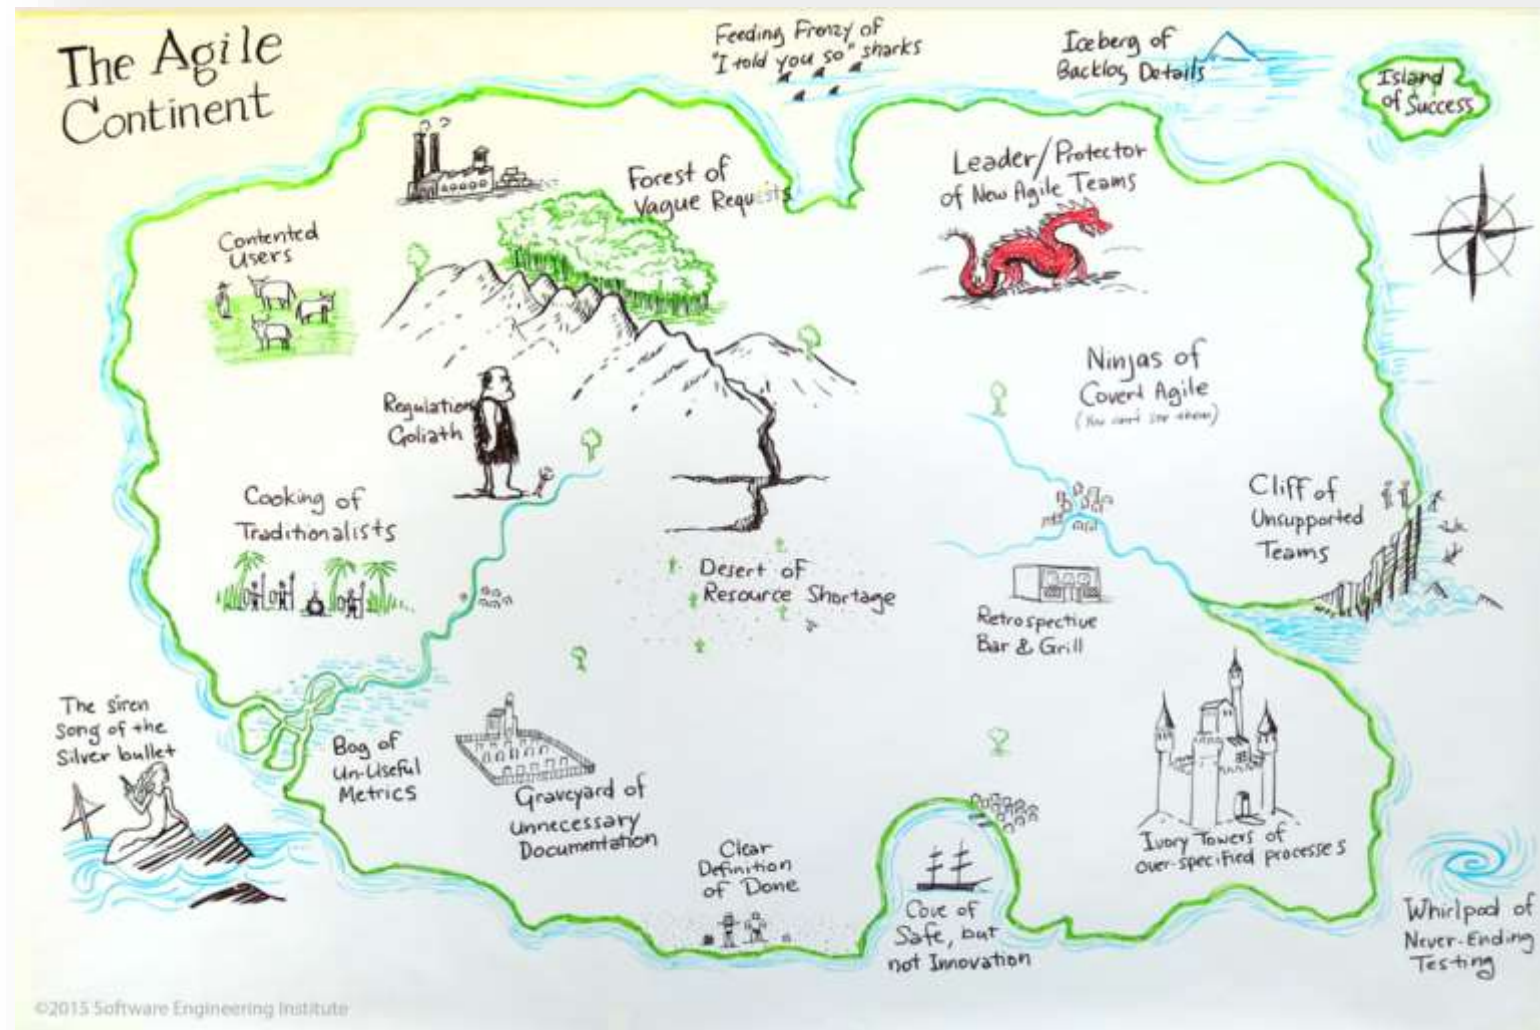 The Agile
Continent
Feeding Frenzy of
"I told you so" sharks
Iceberg of
Backlog Details
Island
of Success
Forest of
Vague Requests
Leader/Protector
of New Agile Teams
Contented
Users
Ninjas of
Covert Agile
(You can't see them)
Regulation
Goliath
Cooking of
Traditionalists
Cliff of
Unsupported
Teams
Desert of
Resource Shortage
Retrospective
Bar & Grill
The siren
song of the
Silver bullet
Bog of
Un-Useful
Metrics
Graveyard of
Unnecessary
Documentation
Clear
Definition
of Done
Cove of
Safe, but
not Innovation
Ivory Towers of
over-specified processes
Whirlpool of
Never-Ending
Testing
©2015 Software Engineering Institute